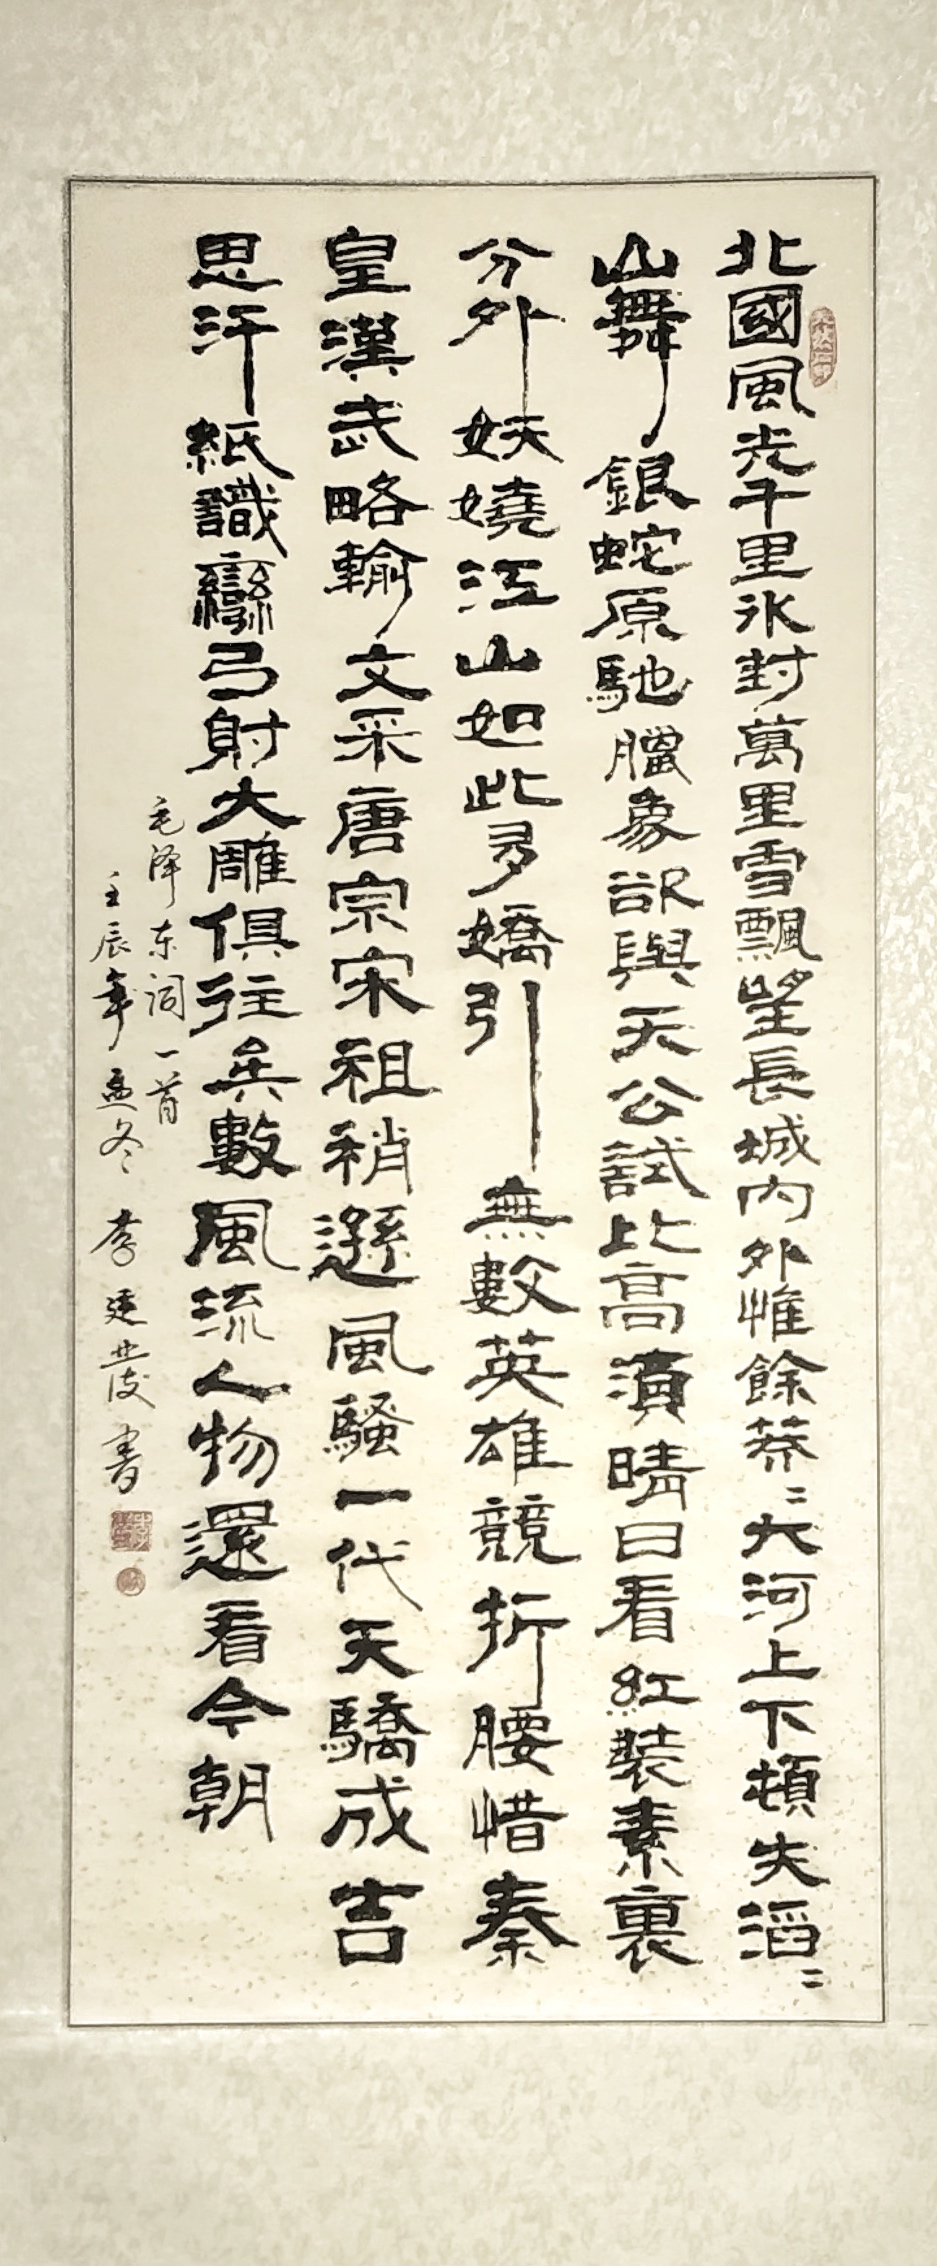 北國風光千里冰封萬里雪飄望長城内外惟餘莽〻大河上下頓失滔〻
山舞銀蛇原馳臘象欲與天公試比高須晴日看紅裝素裹
分外妖嬈江山如此多嬌引無數英雄競折腰惜秦
皇漢武略輸文采唐宗宋祖稍遜風騷一代天驕成吉
思汗紙識彎弓射大雕俱往矣數風流人物還看今朝
毛泽东词一首
壬辰年孟冬 李廷发书